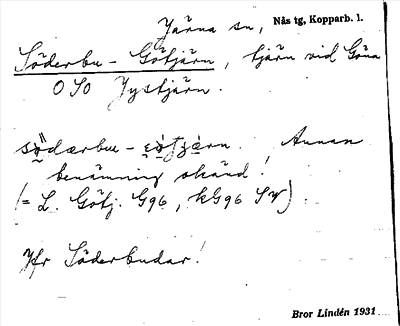 Järna sn, Nås tg, Kopparb. l.
Söderbu-Götjärn, tjärn vid Göna
O SO Jystjärn.
södærbu- Annan
benämning okänd!
(= L. Götj. G96, kG96 SV).
Jfr Söderbudar!
Bror Lindén 1931